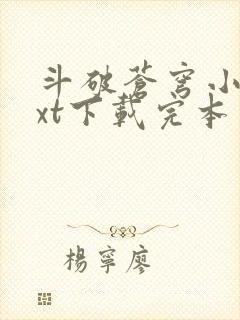 斗破蒼穹小
xt下載完本
楊寧廖